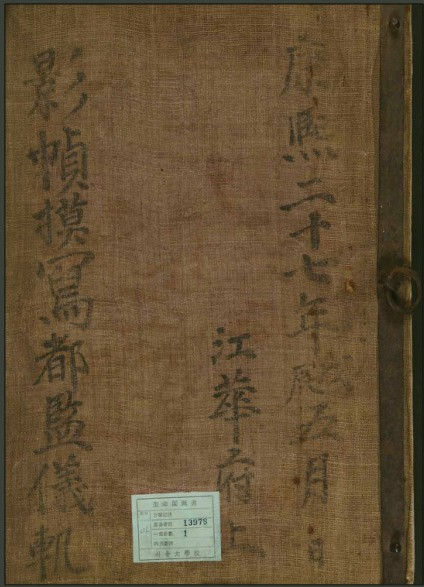 康熙二十七年戊辰五月 日
江華府上
影幀摸冩都監儀軌
奎章閣圖書
13978
1
서울大學校